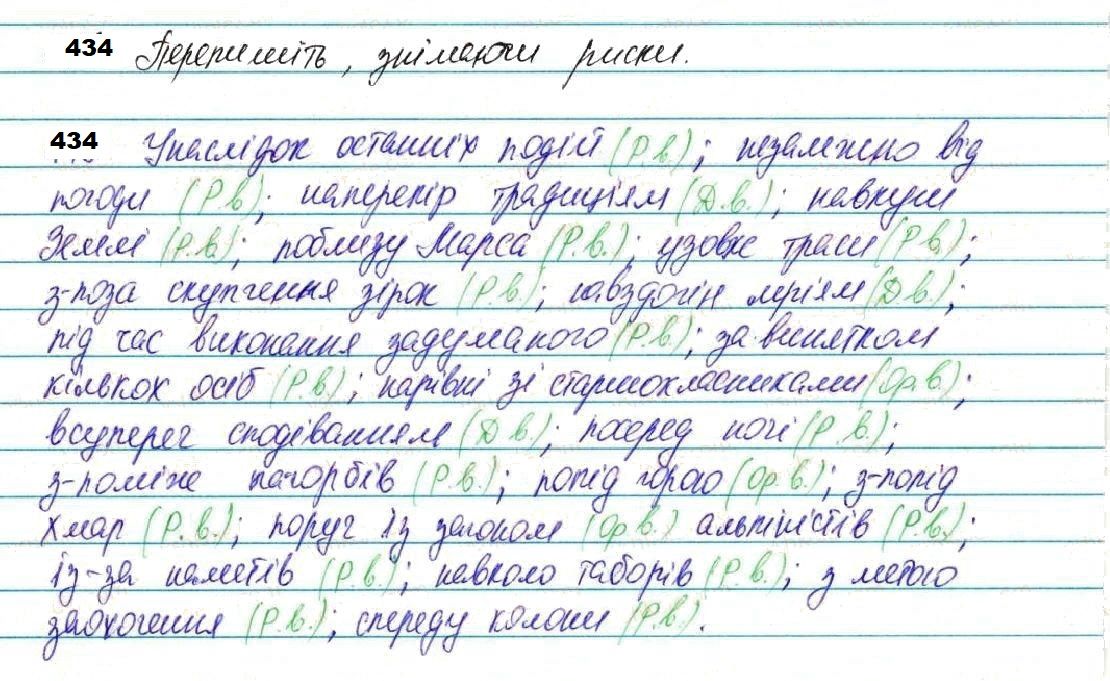 434 Перепишіть, знімаючи риски.
434 Унаслідок останніх подій (Р.в.); незалежно від
погоди (Р.в); наперекір традиціям (Д.в.); навкруги
Землі (Р.в.); поблизу Марса (Р.в.); узовж траси (Р.в.);
з-поза скупчення зірок (Р.в.); навздогін мріям (Д.в.);
під час виконання задуманого (Р.в.); за винятком
кількох осіб (Р.в.); нарівні зі старшокласниками (Ор.в.);
всупереч сподіванням (Д.в.); посеред ночі (Р.в.);
з-поміж пагорбів (Р.в.); попід горою (Ор.в.); з-попід
хмар (Р.в.); поруч із загоном (Ор.в.) альпіністів (Р.в.);
із-за наметів (Р.в.); навколо таборів (Р.в.); з метою
заохочення (Р.в.); спереду колони (Р.в.).